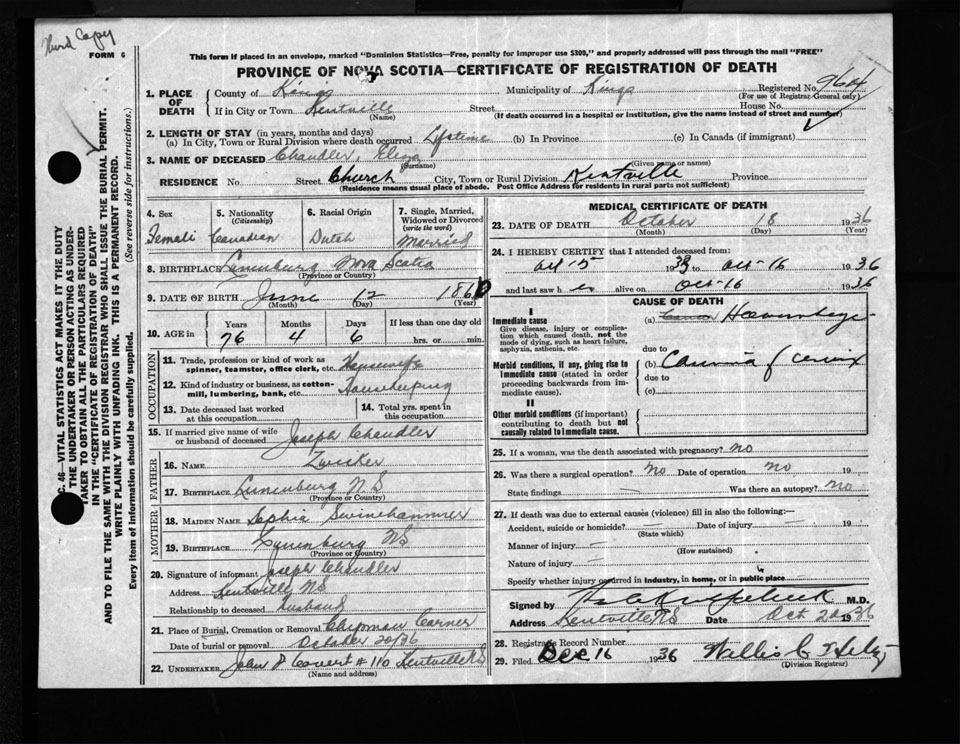 Third Copy
FORM 6
This form if placed in an envelope, marked "Dominion Statistics—Free, penalty for improper use $300," and properly addressed will pass through the mail "FREE"
PROVINCE OF NOVA SCOTIA—CERTIFICATE OF REGISTRATION OF DEATH
Registered No. 964
(For use of Registrar General only)
1. PLACE OF DEATH { County of Kings Municipality of Kings
If in City or Town Kentville Street House No.
(Name) (If death occurred in a hospital or institution, give the name instead of street and number)
2. LENGTH OF STAY (in years, months and days)
(a) In City, Town or Rural Division where death occurred Lifetime (b) In Province (c) In Canada (if immigrant)
3. NAME OF DECEASED Chandler, Eliza
(Surname) (Given name or names)
RESIDENCE No. Street Church City, Town or Rural Division Kentville Province
(Residence means usual place of abode. Post Office Address for residents in rural parts not sufficient)
4. Sex Female
5. Nationality (Citizenship) Canadian
6. Racial Origin Dutch
7. Single, Married, Widowed or Divorced (write the word) Married
8. BIRTHPLACE Lunenburg Nova Scotia
(Province or Country)
9. DATE OF BIRTH June 12 1860
(Month) (Day) (Year)
10. AGE in Years Months Days If less than one day old
76 4 6 hrs. or min.
OCCUPATION
11. Trade, profession or kind of work as spinner, teamster, office clerk, etc. Housewife
12. Kind of industry or business, as cotton-mill, lumbering, bank, etc. Housekeeping
13. Date deceased last worked at this occupation
14. Total yrs. spent in this occupation
15. If married give name of wife or husband of deceased Joseph Chandler
FATHER
16. NAME Zwicker
17. BIRTHPLACE Lunenburg N S
(Province or Country)
MOTHER
18. MAIDEN NAME Sophie Swinehammer
19. BIRTHPLACE Lunenburg NS
(Province or Country)
20. Signature of informant Joseph Chandler
Address Kentville NS
Relationship to deceased Husband
21. Place of Burial, Cremation or Removal Chipman Corner
Date of burial or removal October 20/36
22. UNDERTAKER John P # 110 Kentville NS
(Name and address)
MEDICAL CERTIFICATE OF DEATH
23. DATE OF DEATH October 18 1936
(Month) (Day) (Year)
24. I HEREBY CERTIFY that I attended deceased from:
Oct-15 19 to Oct-16 1936
and last saw h er alive on Oct-16 1936
CAUSE OF DEATH
I
Immediate cause
Give disease, injury or complication which caused death, not the mode of dying, such as heart failure, asphyxia, asthenia, etc.
(a) Haemorrhage
due to
Morbid conditions, if any, giving rise to immediate cause (stated in order proceeding backwards from immediate cause).
(b) Carcinoma of cervix
due to
(c)
II
Other morbid conditions (if important) contributing to death but not causally related to immediate cause.
25. If a woman, was the death associated with pregnancy? no
26. Was there a surgical operation? no Date of operation no 19
State findings — Was there an autopsy? no
27. If death was due to external causes (violence) fill in also the following:—
Accident, suicide or homicide? — Date of injury — 19
(State which)
Manner of injury —
(How sustained)
Nature of injury —
Specify whether injury occurred in industry, in home, or in public place
Signed by M.D.
Address Kentville NS Date Oct 20 1936
28. Registrar's Record Number
29. Filed Dec 16 1936 Willis C
(Division Registrar)
C. 46—VITAL STATISTICS ACT MAKES IT THE DUTY
THE UNDERTAKER OR PERSON ACTING AS UNDER-
TAKER TO OBTAIN ALL THE PARTICULARS REQUIRED
IN THE "CERTIFICATE OF REGISTRATION OF DEATH"
AND TO FILE THE SAME WITH THE DIVISION REGISTRAR WHO SHALL ISSUE THE BURIAL PERMIT.
WRITE PLAINLY WITH UNFADING INK. THIS IS A PERMANENT RECORD.
Every item of information should be carefully supplied. (See reverse side for instructions.)